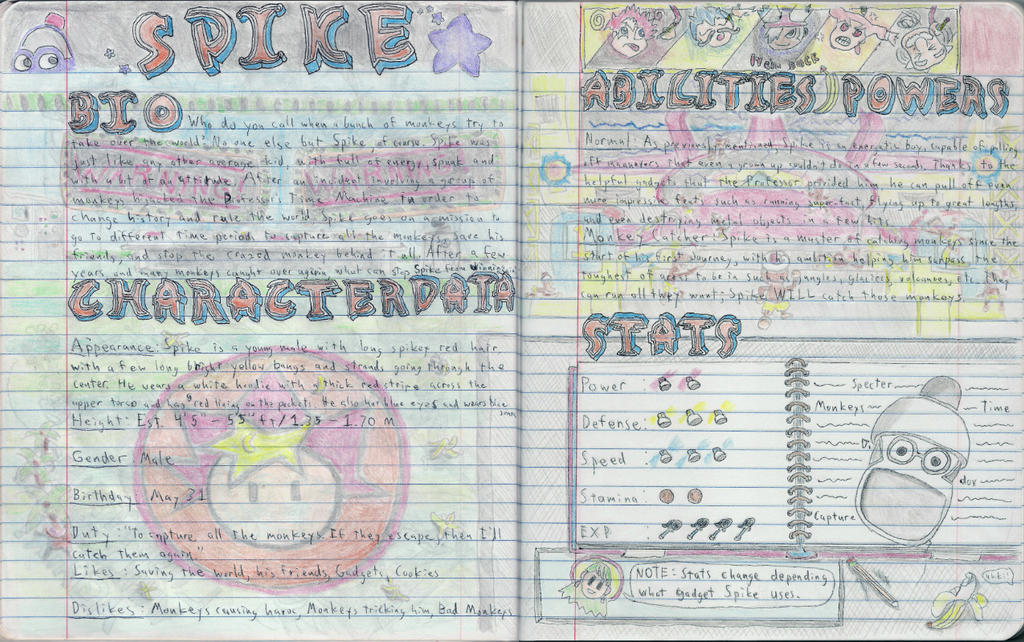 SPIKE
BIO
Who do you call when a bunch of monkeys try to
take over the world? No one else but Spike, of course. Spike was
just like any other average kid with full of energy, spunk and
with a bit of an attitude. After an incident involving a group of
monkeys hijacked the Professor's Time Machine in order to
change history and rule the world, Spike goes on a mission to
go to different time periods to capture all the monkeys, save his
friends, and stop the crazed monkey behind it all. After a few
years and many monkeys caught over again, what can stop Spike from winning?
CHARACTER DATA
Appearance: Spike is a young male with long spikey red hair
with a few long bright yellow bangs and strands going through the
center. He wears a white hoodie with a thick red stripe across the
upper torso and has red lining on the pockets. He also has blue eyes and wears blue
Height: Est. 4'5" - 5'5" ft / 1.35 - 1.70 m
Gender: Male
Birthday: May 31
Duty: "To capture all the monkeys. If they escape, then I'll
catch them again."
Likes: Saving the world, his friends, Gadgets, Cookies
Dislikes: Monkeys causing havoc, Monkeys tricking him, Bad Monkeys
ABILITIES/POWERS
Normal: As previously mentioned, Spike is an energetic boy, capable of pulling
off maneuvers that even a grown up couldn't do in a few seconds. Thanks to
helpful gadgets that the Professor provided him, he can pull off even
more impressive feats, such as running super-fast, flying up to great lengths
and even destroying metal objects in a few hits.
Monkey Catcher: Spike is a master of catching monkeys since the
start of his first journey, with his ambition helping him surpass the
toughest of areas to be in such as jungles, glaciers, volcanoes, etc. They
can run all they want; Spike WILL catch those monkeys.
STATS
Power:
Defense:
Speed:
Stamina:
EXP
Specter
Monkeys
Time
Capture
NOTE: Stats change depending
what gadget Spike uses.